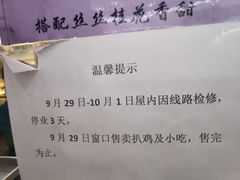 搭配丝丝桂花香甜
温馨提示
9月29日-10月1日屋内因线路检修，
停业3天。
9月29日窗口售卖扒鸡及小吃，售完
为止。